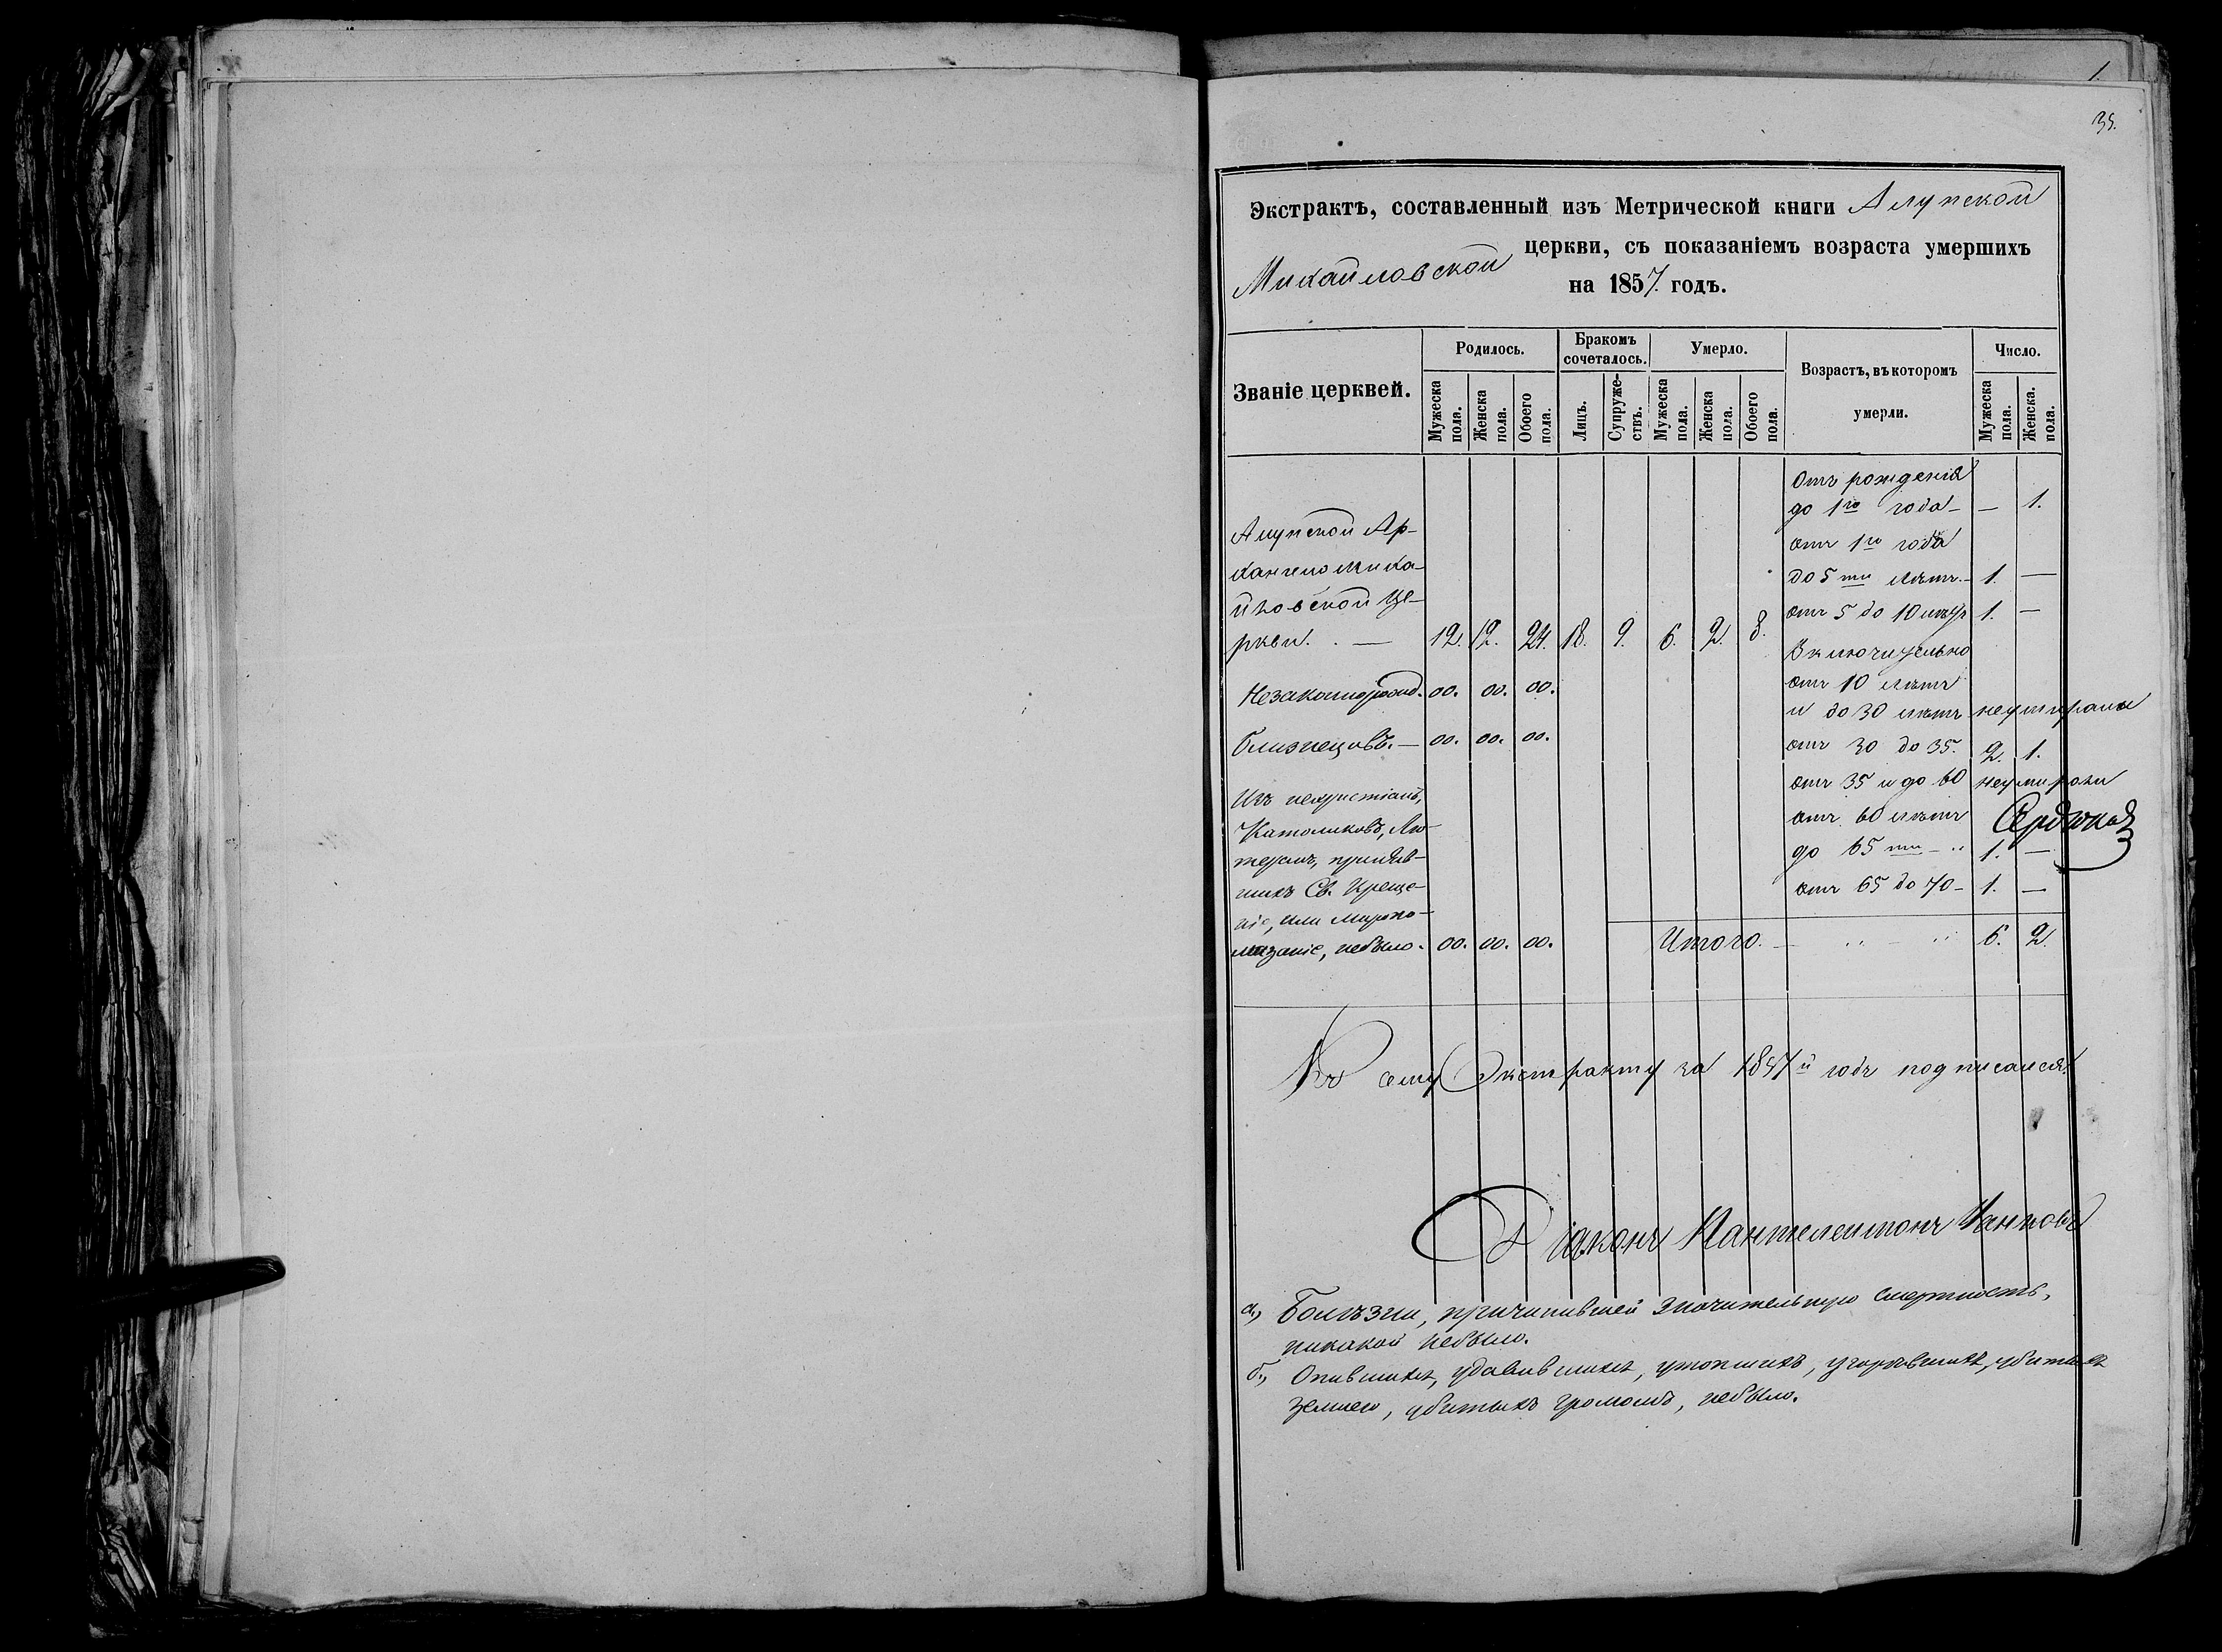 1.
35.
Экстрактъ, составленный изъ Метрической книги Алупской
Михайловской церкви, съ показаніемъ возраста умершихъ
на 1857. годъ.
Званіе церквей.
Родилось.
Бракомъ сочеталось.
Умерло.
Возрастъ, въ которомъ умерли.
Число.
Мужеска пола.
Женска пола.
Обоего пола.
Лицъ.
Супружествъ.
Мужеска пола.
Женска пола.
Обоего пола.
Мужеска пола.
Женска. пола.
Алупской Ар-
хангело Миха-
йловской Це-
ркви. . — 12. 12. 24. 18. 9. 6. 2. 8.
Незаконорожд. 00. 00. 00.
Близнецовъ. — 00. 00. 00.
Изъ нехристіанъ,
Католиковъ, Лю-
теранъ, приняв-
шихъ Св. Креще-
ніе, или Миропо-
мазаніе, небыло. 00. 00. 00.
Отъ рожденія
до 1го года — — 1.
отъ 1го года
до 5 ти лѣтъ. — 1. —
отъ 5 до 10 лѣтъ 1. —
Включительно
отъ 10 лѣтъ
и до 30 лѣтъ неумирали
отъ 30 до 35. 2. 1.
отъ 35 и до 60 неумирали
отъ 60 лѣтъ
до 65 ти — 1. —
отъ 65 до 70 — 1. —
Итого. — 6. 2.
Къ сему Экстракту за 1857й годъ подписался:
Діаконъ Пантелеимонъ
а., Болѣзни, причинившей значительную смертность,
никакой небыло.
б., Опившихся, удавившихся, утопшихъ, угорѣвшихъ, убитыхъ
землею, убитыхъ громомъ, небыло.